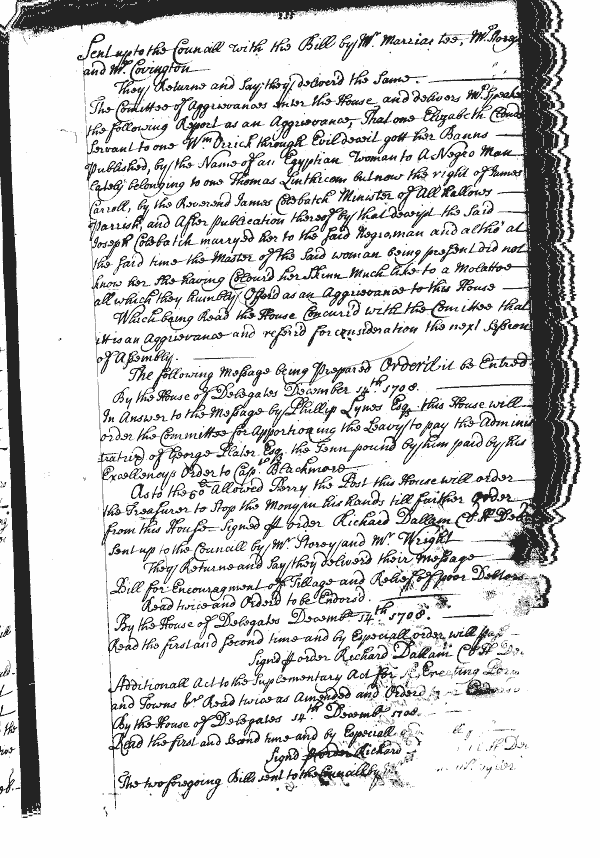 235
Sent up to the Councill with the Bill by Mr. Marriartee, Mr. Storey
and Mr. Covington
They Returne and Say they deliverd the Same.
The Comittee of Aggrievances enter the House and delivers Mr. Speaker
the following Report as an Aggrievance, That one Elizabeth Cloud
Servant to one Wm Orrick through Evil deceit gott her Banns
Published, by the Name of an Egyptian Woman to A Negro Man
lately belonging to one Thomas Linthicom but now the right of James
Carroll, by the Reverend James Colebatch Minister of All hallows
Parrish, and After Publication thereof by that deceipt the Said
Joseph Colebatch marryed her to the said Negro man and altho' at
the said time the Master of the Said woman being present did not
know her She having Colour'd her Skinn much like to a Molattoe
all which they humbly Offerd as an Aggrievance to this House
Which being Read the House Concurr'd with the Comittee that
it is an Aggrievance and referr'd for consideration the next Session
of Assembly.
The following Message being Prepared Order'd it be Entred
By the House of Delegates December 14th 1708.
In Answer to the Message by Phillip Lynes Esqr. this House will
order the Committee for Apportioning the Leavy to pay the Adminis
trative of George Plater Esqr. the Tenn pound by him paid by his
Excellencys Order to Capt. Blackmore
As to the Allowed Perry the Post this House will order
the Treasurer to Stop the Mony in his hands till further order
from this House Signed p order Richard Dallam Cl. H. Del
Sent up to the Councill by Mr. Storey and Mr. Wright
They Returne and Say they deliverd their Message
Bill for Encouragment of Tillage and Relief of poor Debtors
Read twice and Orderd to be Endorsd.
By the House of Delegates Decembr 14th 1708.
Read the first and second time and by Especiall order will pass
Signd p order Richard Dallam Cl. H. De
Additionall Act to the Suplementary Act for Erecting Ports
and Towns &c Read twice as Amended and Orderd Endorsd
By the House of Delegates 14th Decembr 1708.
Read the first and second time and by Especiall
Signd p order Richard H. De
The two foregoing Bills sent to the Councill by